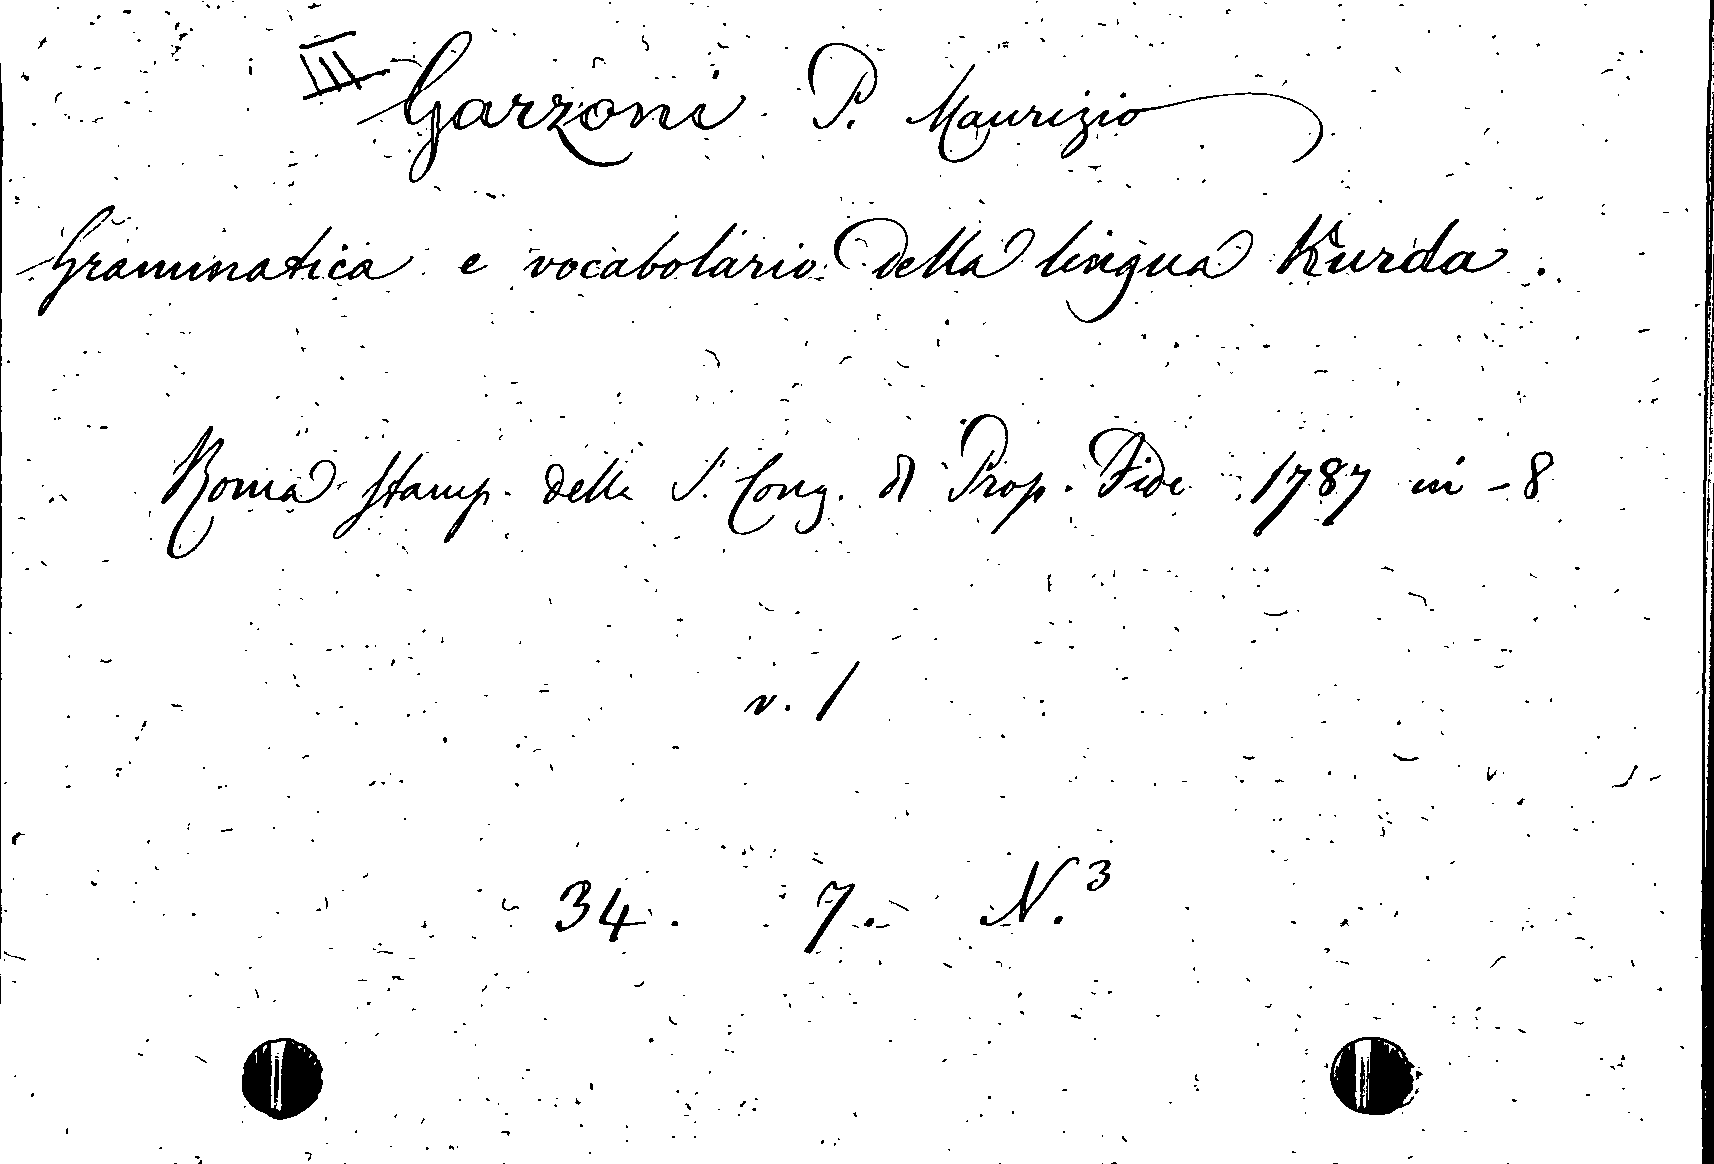 III Garzoni P. Maurizio
Grammatica e vocabolario della lingua Kurda.
Roma Stamp. della S. Cong. di Prop. Fide 1787 in-8
v. 1
34. 7. N. 3